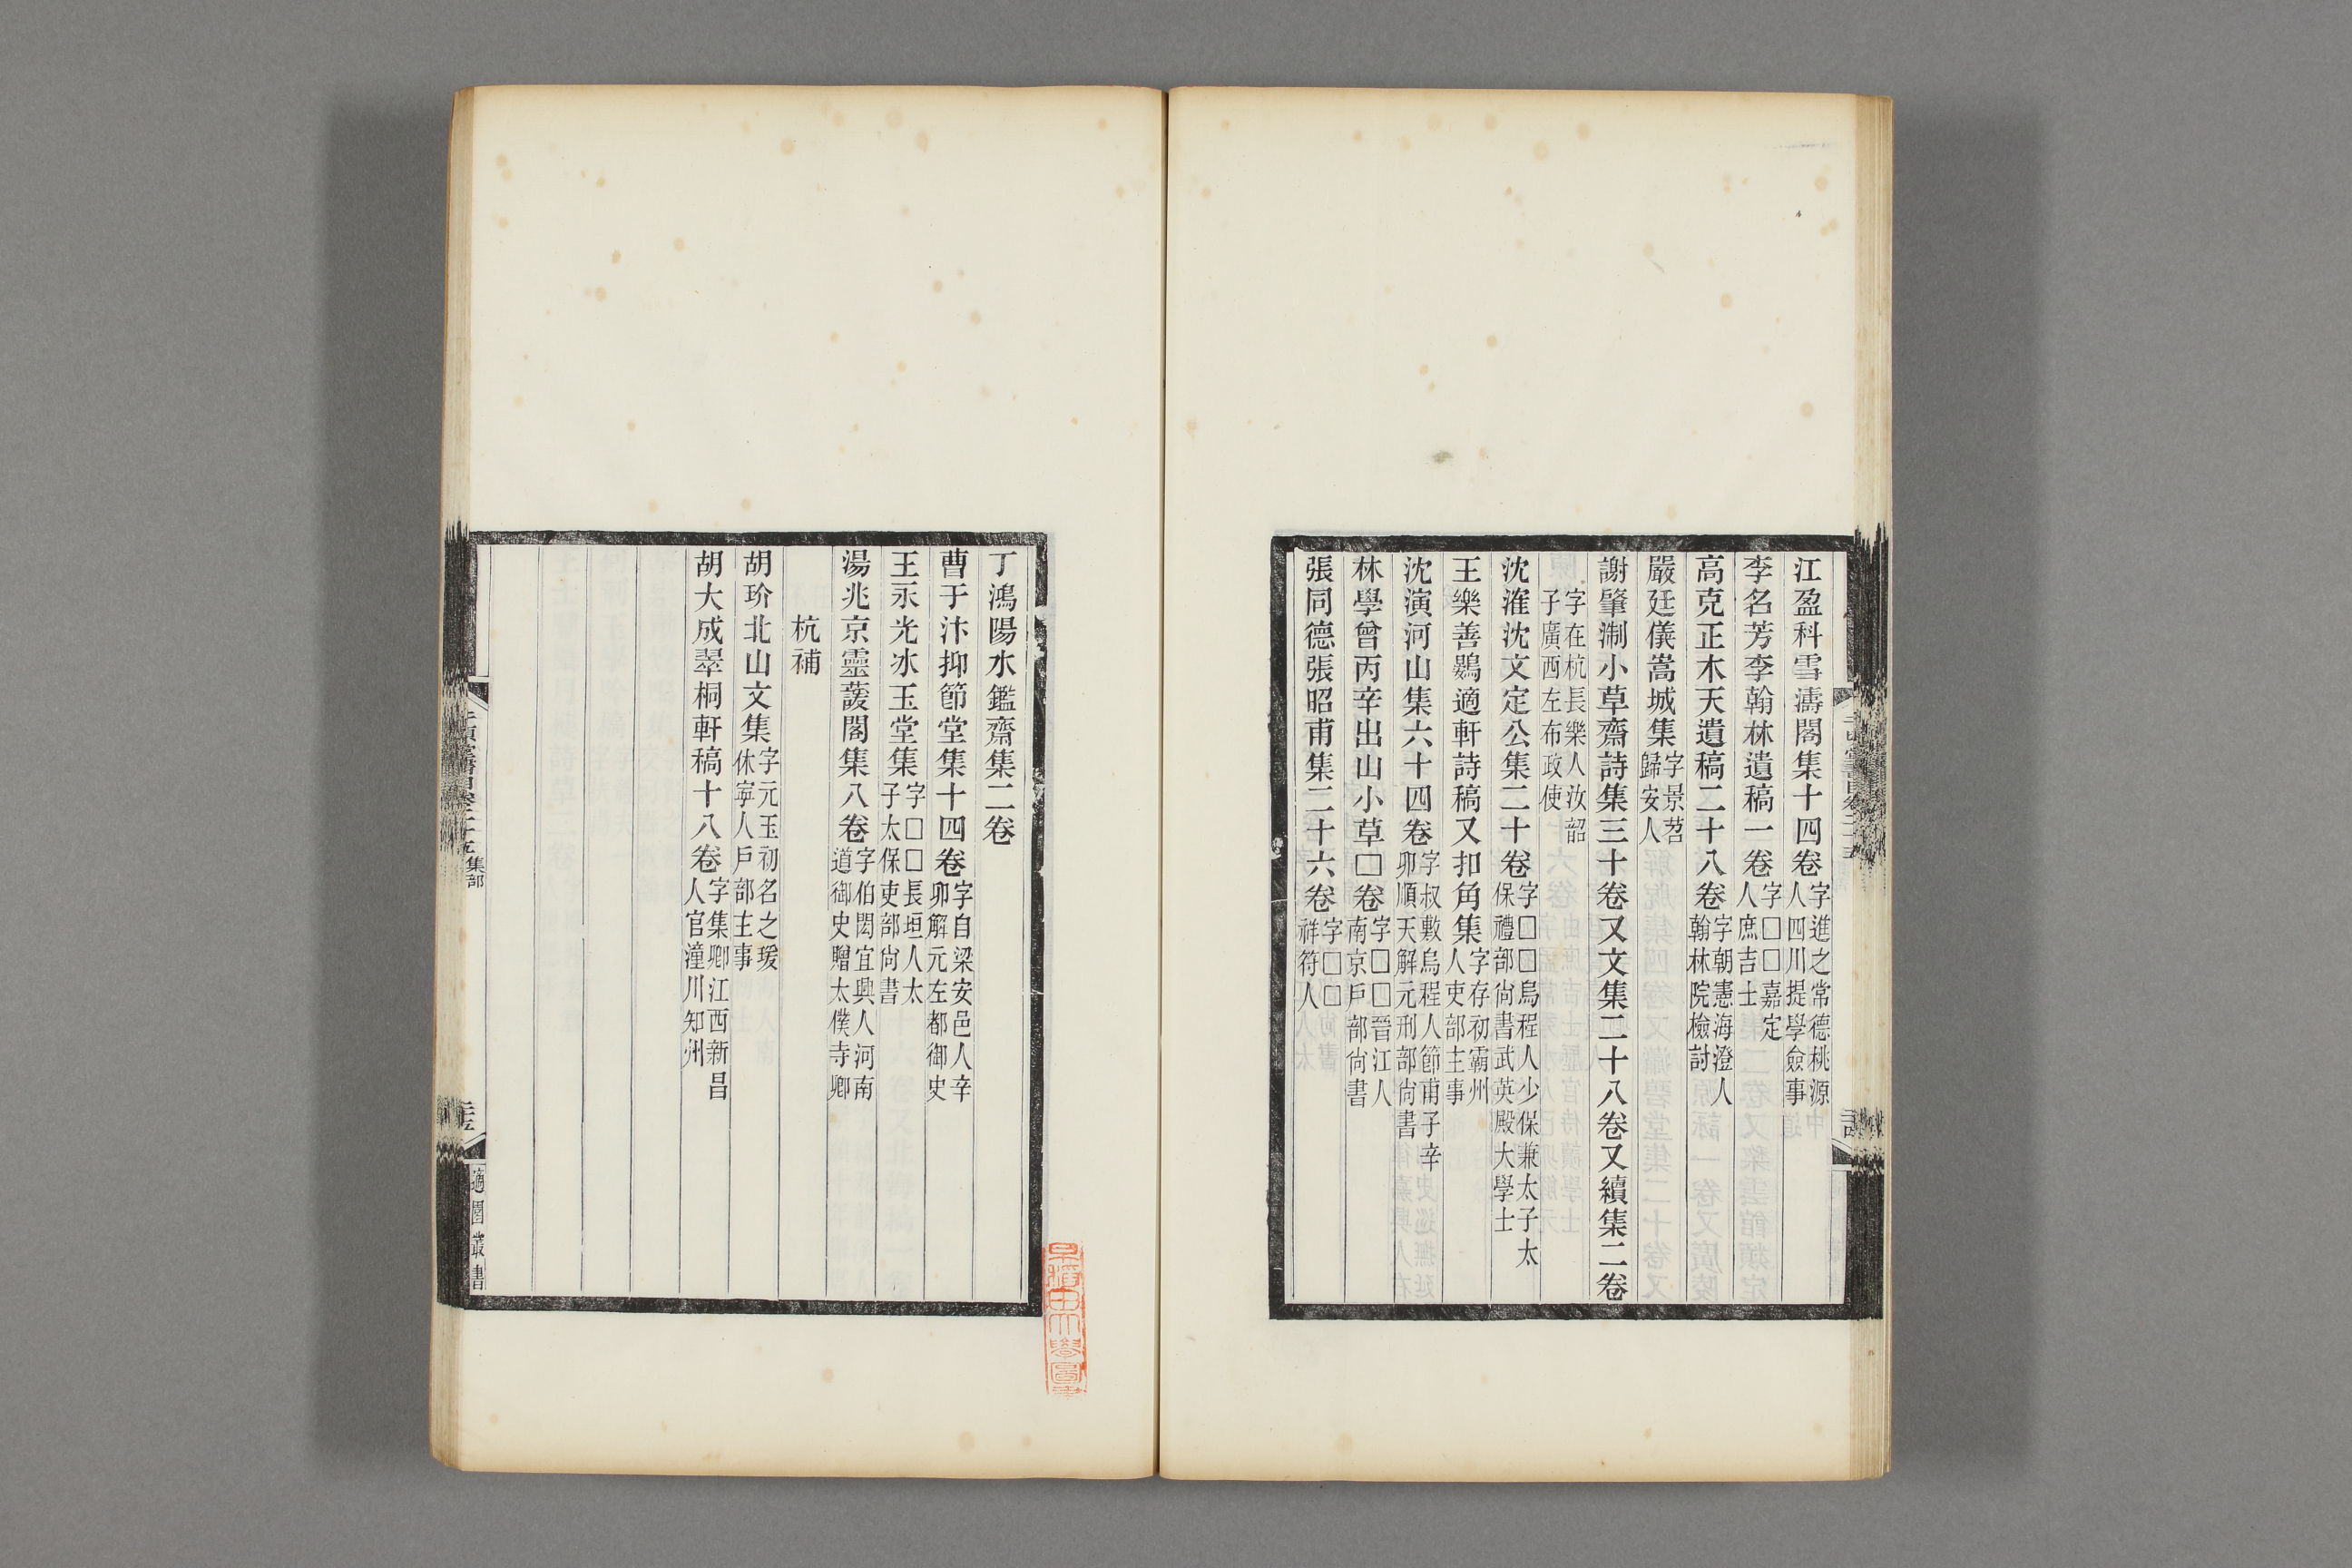 江盈科雪濤閣集十四卷字進之常德桃源人四川提學僉事
李名芳李翰林遺稿一卷字□□嘉定人庶吉士
高克正木天遺稿二十八卷字朝憲海澄人翰林院檢討
嚴廷儀嵩城集字景苕歸安人
謝肇淛小草齋詩集三十卷又文集二十八卷又續集二卷
字在杭長樂人汝韶子廣西左布政使
沈㴶沈文定公集二十卷字□□烏程人少保兼太子太保禮部尚書武英殿大學士
王樂善鷃適軒詩稿又扣角集字存初霸州人吏部主事
沈演河山集六十四卷字叔敷烏程人節甫子辛卯順天解元刑部尚書
林學曾丙辛出山小草□卷字□□晉江人南京戶部尚書
張同德張昭甫集二十六卷字□□祥符人
丁鴻陽水鑑齋集二卷
曹于汴抑節堂集十四卷字自梁安邑人辛卯解元左都御史
王永光冰玉堂集字□□長垣人太子太保吏部尚書
湯兆京靈蘐閣集八卷字伯閎宜興人河南道御史贈太僕寺卿
杭補
胡玠北山文集字元玉初名之瑗休寧人戶部主事
胡大成翠桐軒稿十八卷字集卿江西新昌人官潼川知州
集部
適園叢書